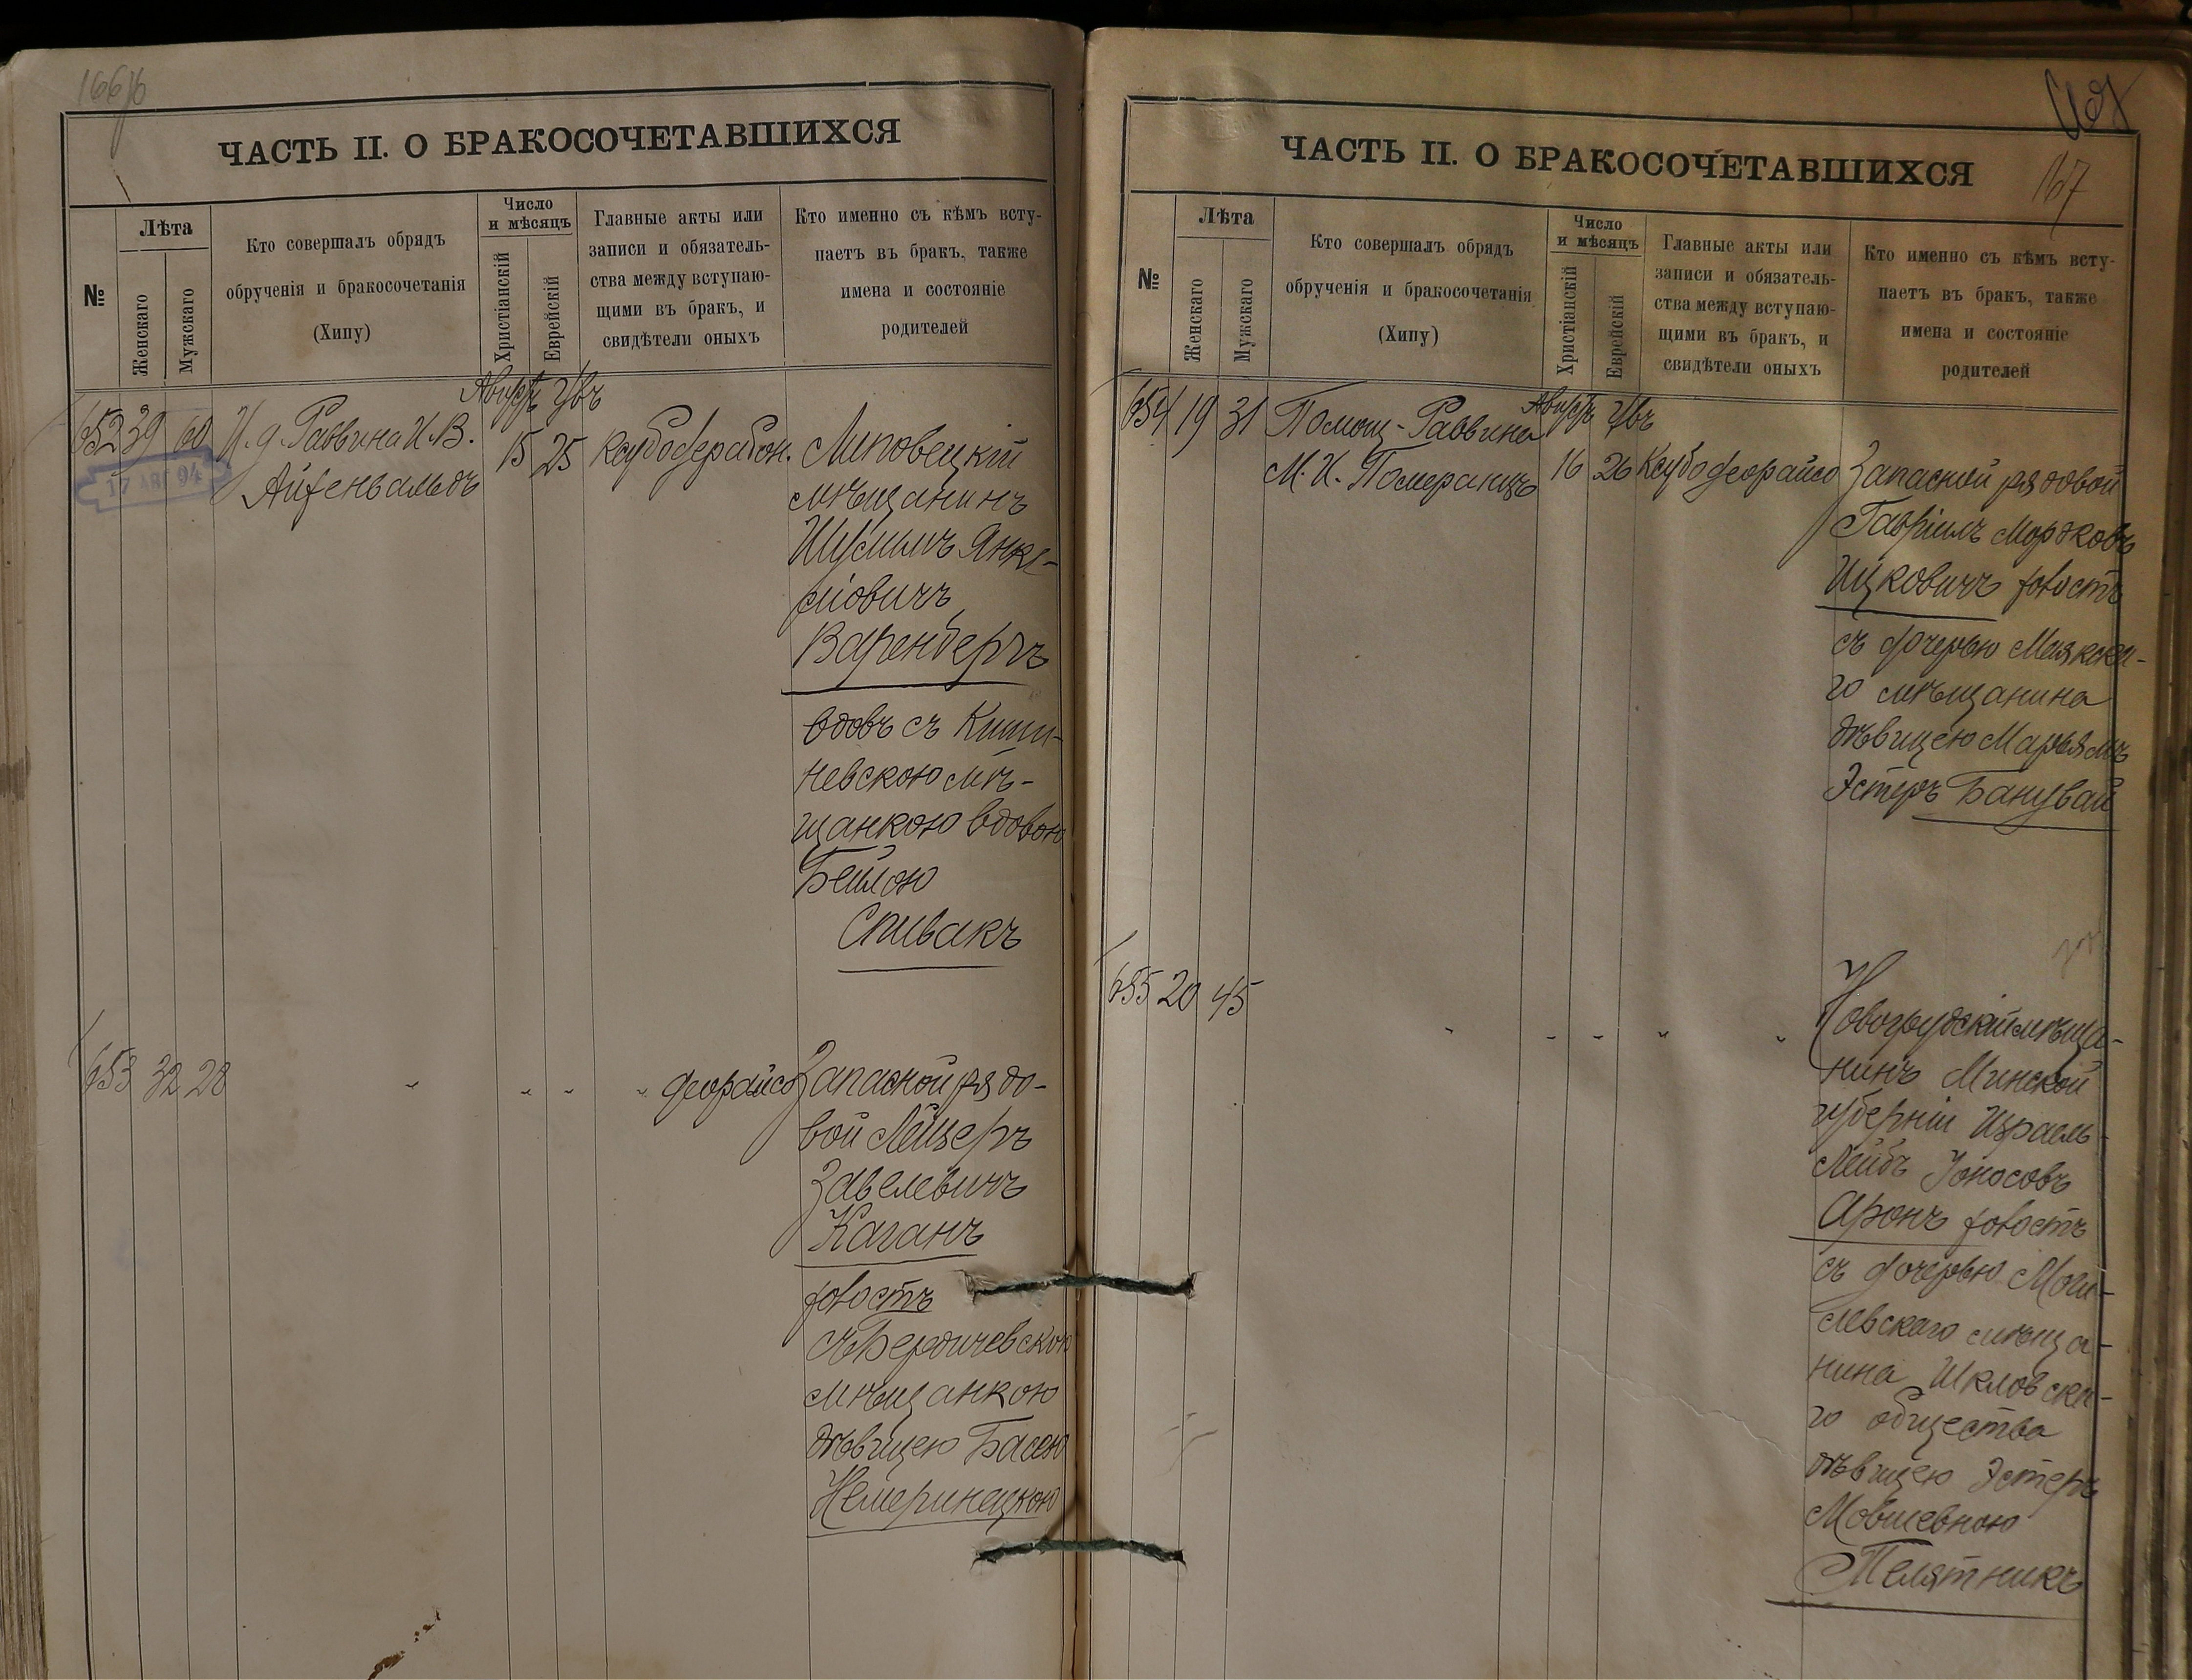 ЧАСТЬ II. О БРАКОСОЧЕТАВШИХСЯ
№
Лѣта
Женскаго
Мужскаго
Кто совершалъ обрядъ
обрученія и бракосочетанія
(Хипу)
Число
и мѣсяцъ
Христіанскій
Еврейскій
Главные акты или
записи и обязатель-
ства между вступаю-
щими въ бракъ, и
свидѣтели оныхъ
Кто именно съ кѣмъ всту-
паетъ въ бракъ, также
имена и состояніе
родителей
652 39 60 И. д. Раввина И. В.
Айзенвальдъ
15 25
Липовецкій
мѣщанинъ
Шусимъ Янке-
лiовичъ
Варенбергъ
вдовъ съ Киши-
невскою мѣ-
щанкою вдовою
Бейлою
Спивакъ
653 32 28
Запасной рядо-
вой Лейзеръ
Завелевичъ
Каганъ
холостъ
съ Бердичевскою
мѣщанкою
дѣвицею Басею
Немеринецкою
ЧАСТЬ II. О БРАКОСОЧЕТАВШИХСЯ
167
№
Лѣта
Женскаго
Мужскаго
Кто совершалъ обрядъ
обрученія и бракосочетанія
(Хипу)
Число
и мѣсяцъ
Христіанскій
Еврейскій
Главные акты или
записи и обязатель-
ства между вступаю-
щими въ бракъ, и
свидѣтели оныхъ
Кто именно съ кѣмъ всту-
паетъ въ бракъ, также
имена и состояніе
родителей
654 19 31 Помощ-Раввина
М. И. Померанцъ
16 26
Запасной рядовой
Гавріилъ Мордковъ
Ицковичъ холостъ
съ дочерью Маякска-
го мѣщанина
дѣвицею Марьямъ
Эстеръ Банувай
655 20 45
Новогрудскій мѣща-
нинъ Минской
губерніи Израель-
Лейбъ Іоносовъ
Аронъ холостъ
съ дочерью Моги-
левскаго мѣща-
нина Шкловска-
го общества
дѣвицею Эстеръ
Мовшевною
Телятникъ